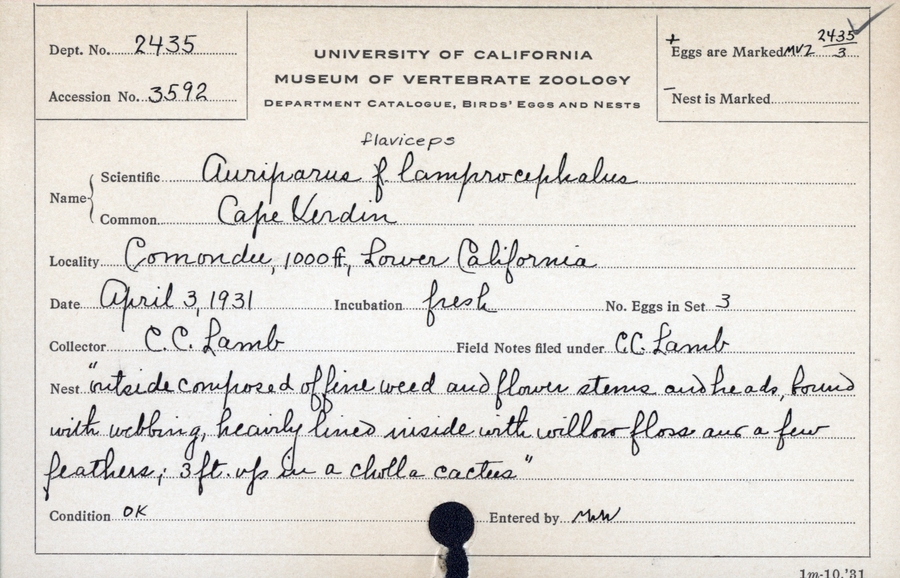 Dept. No. 2435
Accession No. 3592
UNIVERSITY OF CALIFORNIA
MUSEUM OF VERTEBRATE ZOOLOGY
DEPARTMENT CATALOGUE, BIRDS' EGGS AND NESTS
+ Eggs are Marked MVZ 2435/3
- Nest is Marked
flaviceps
Name { Scientific Auriparus f lamprocephalus
Common Cape Verdin
Locality Comondu, 1000 ft., Lower California
Date April 3, 1931 Incubation fresh No. Eggs in Set 3
Collector C.C. Lamb Field Notes filed under C.C. Lamb
Nest "outside composed of fine weed and flower stems and heads, bound
with webbing, heavily lined inside with willow floss and a few
feathers; 3 ft. up in a cholla cactus"
Condition OK Entered by
1m-10,'31